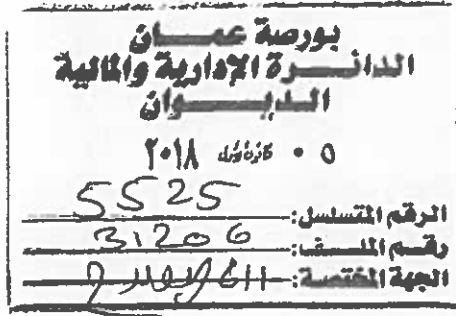 بورصة عمـــان
الدائـــرة الإدارية والمالية
الديـــوان
٠٥ كانون أول ٢٠١٨
الرقم المتسلسل: 5525
رقـــم الملـــف: 31206
الجهة المختصـة: